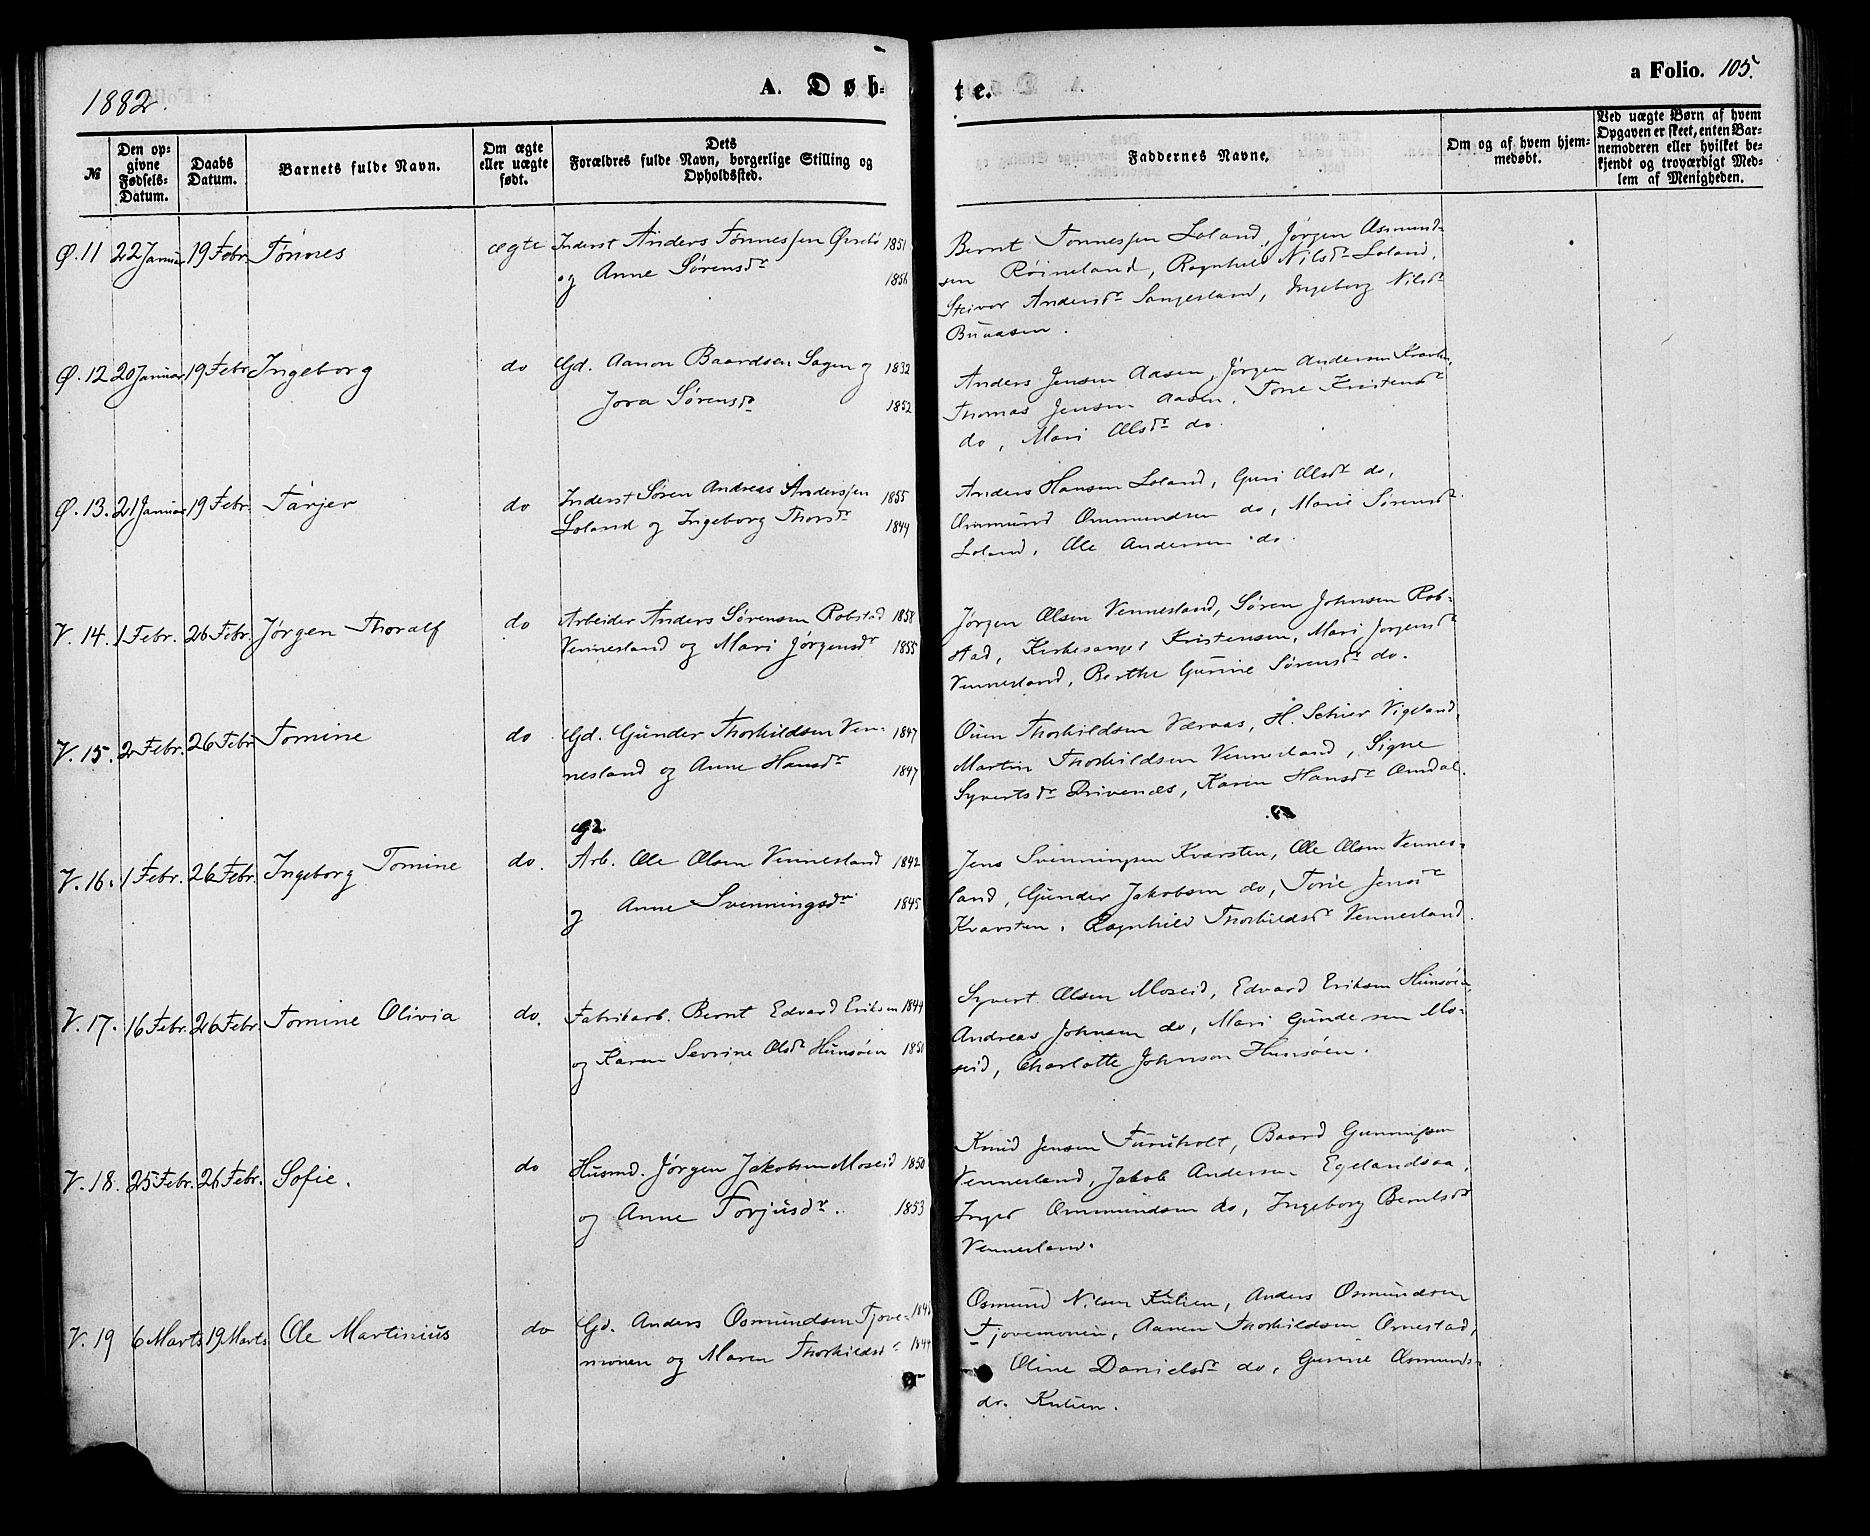 1882.
A. Døb-
te.
a Folio. 105.
№
Den op-
givne
Fødsels-
Datum.
Daabs
Datum.
Barnets fulde Navn.
Om ægte
eller uægte
født.
Dets
Forældres fulde Navn, borgerlige Stilling og
Opholdssted.
Faddernes Navne.
Om og af hvem hjem-
medøbt.
Ved uægte Børn af hvem
Opgaven er skeet, enten Bar-
nemoderen eller hvilket be-
kjendt og troværdigt Med-
lem af Menigheden.
Ø. 11 22 Januar 19 Febr. Tønnes ægte Inderst Anders Tønnessen Øvrebø 1851
og Anne Sørensdr 1856
Bernt Tønnessen Loland, Jørgen Asmund-
sen Røineland, Ragnhild Nilsdr Loland,
Andersdr Sangesland, Ingeborg Nilsdr
Buaasen.
Ø. 12 20 Januar 19 Febr Ingeborg do Gd. Aanon Baardsen Sagen og 1832
Jora Sørensdr 1852
Anders Jensen Aasen, Jørgen Andersen
Thomas Jensen Aasen, Torie Kristensdr
do, Mari Olsdr do.
Ø. 13. 21 Januar 19 Febr. Tarjer do Inderst Søren Andreas Anderssen 1855
Loland og Ingeborg Thorsdr 1844
Anders Hansen Loland, Guri Olsdr do,
Ommund Ommundsen do, Marie Sørensdr
Loland, Ole Andersen do.
V. 14. 1 Febr. 26 Febr. Jørgen Thoralf do Arbeider Anders Sørensen Robstad 1858
Vennesland og Mari Jørgensdr 1855
Jørgen Olsen Vennesland, Søren Johnsen Rob-
stad, Kirkesanger Kristensen, Mari Jørgensdr
Vennesland, Berthe Gurine Sørensdr do.
V. 15. 2 Febr. 26 Febr Tomine do Gd. Gunder Thorkildsen Ven- 1847
nesland og Anne Hansdr 1847
Ouen Thorkildsen Væraas, H. Schier Vigeland,
Martin Thorkildsen Vennesland, Signe
Syvertsdr Drivenes, Karen Hansdr Omdal.
V. 16. 1 Febr. 26 Febr. Ingeborg Tomine do. Arb. Ole Olsen Vennesland 1842
og Anne Svenningsdr 1845
Jens Svenningsen Kvarsten, Ole Olsen Vennes-
land, Gunder Jakobsen do, Torie Jensdr
Kvarsten, Ragnhild Thorkildsdr Vennesland.
V. 17. 16 Febr. 26 Febr. Tomine Olivia do. Fabrikarb. Bernt Edvard Eriksen 1844
og Karen Sevrine Olsdr Hunsøen 1851
Syvert Olsen Moseid, Edvard Eriksen Hunsøen,
Andreas Johnsen do, Mari Gundersen Mo-
seid, Charlotte Johnson Hunsøen.
V. 18. 25 Febr. 26 Febr. Sofie. do Husmd. Jørgen Jakobsen Moseid 1850
og Anne Torjusdr. 1853
Knud Jensen Furuholt, Baard Gunnufsen
Vennesland, Jakob Andersen Egelandsaa,
Inger Ommundsen do, Ingeborg Berntsdr
Vennesland.
V. 19 6 Marts 19 Marts Ole Martinius do Gd. Anders Osmundsen Tjove-
monen og Maren Thorkildsdr 1844
Osmund Nilsen Kulien, Anders Osmundsen
Tjovemonen, Aanen Thorkildsen Ornestad,
Oline Danielsdr do, Gurine Osmunds-
dr. Kulien.